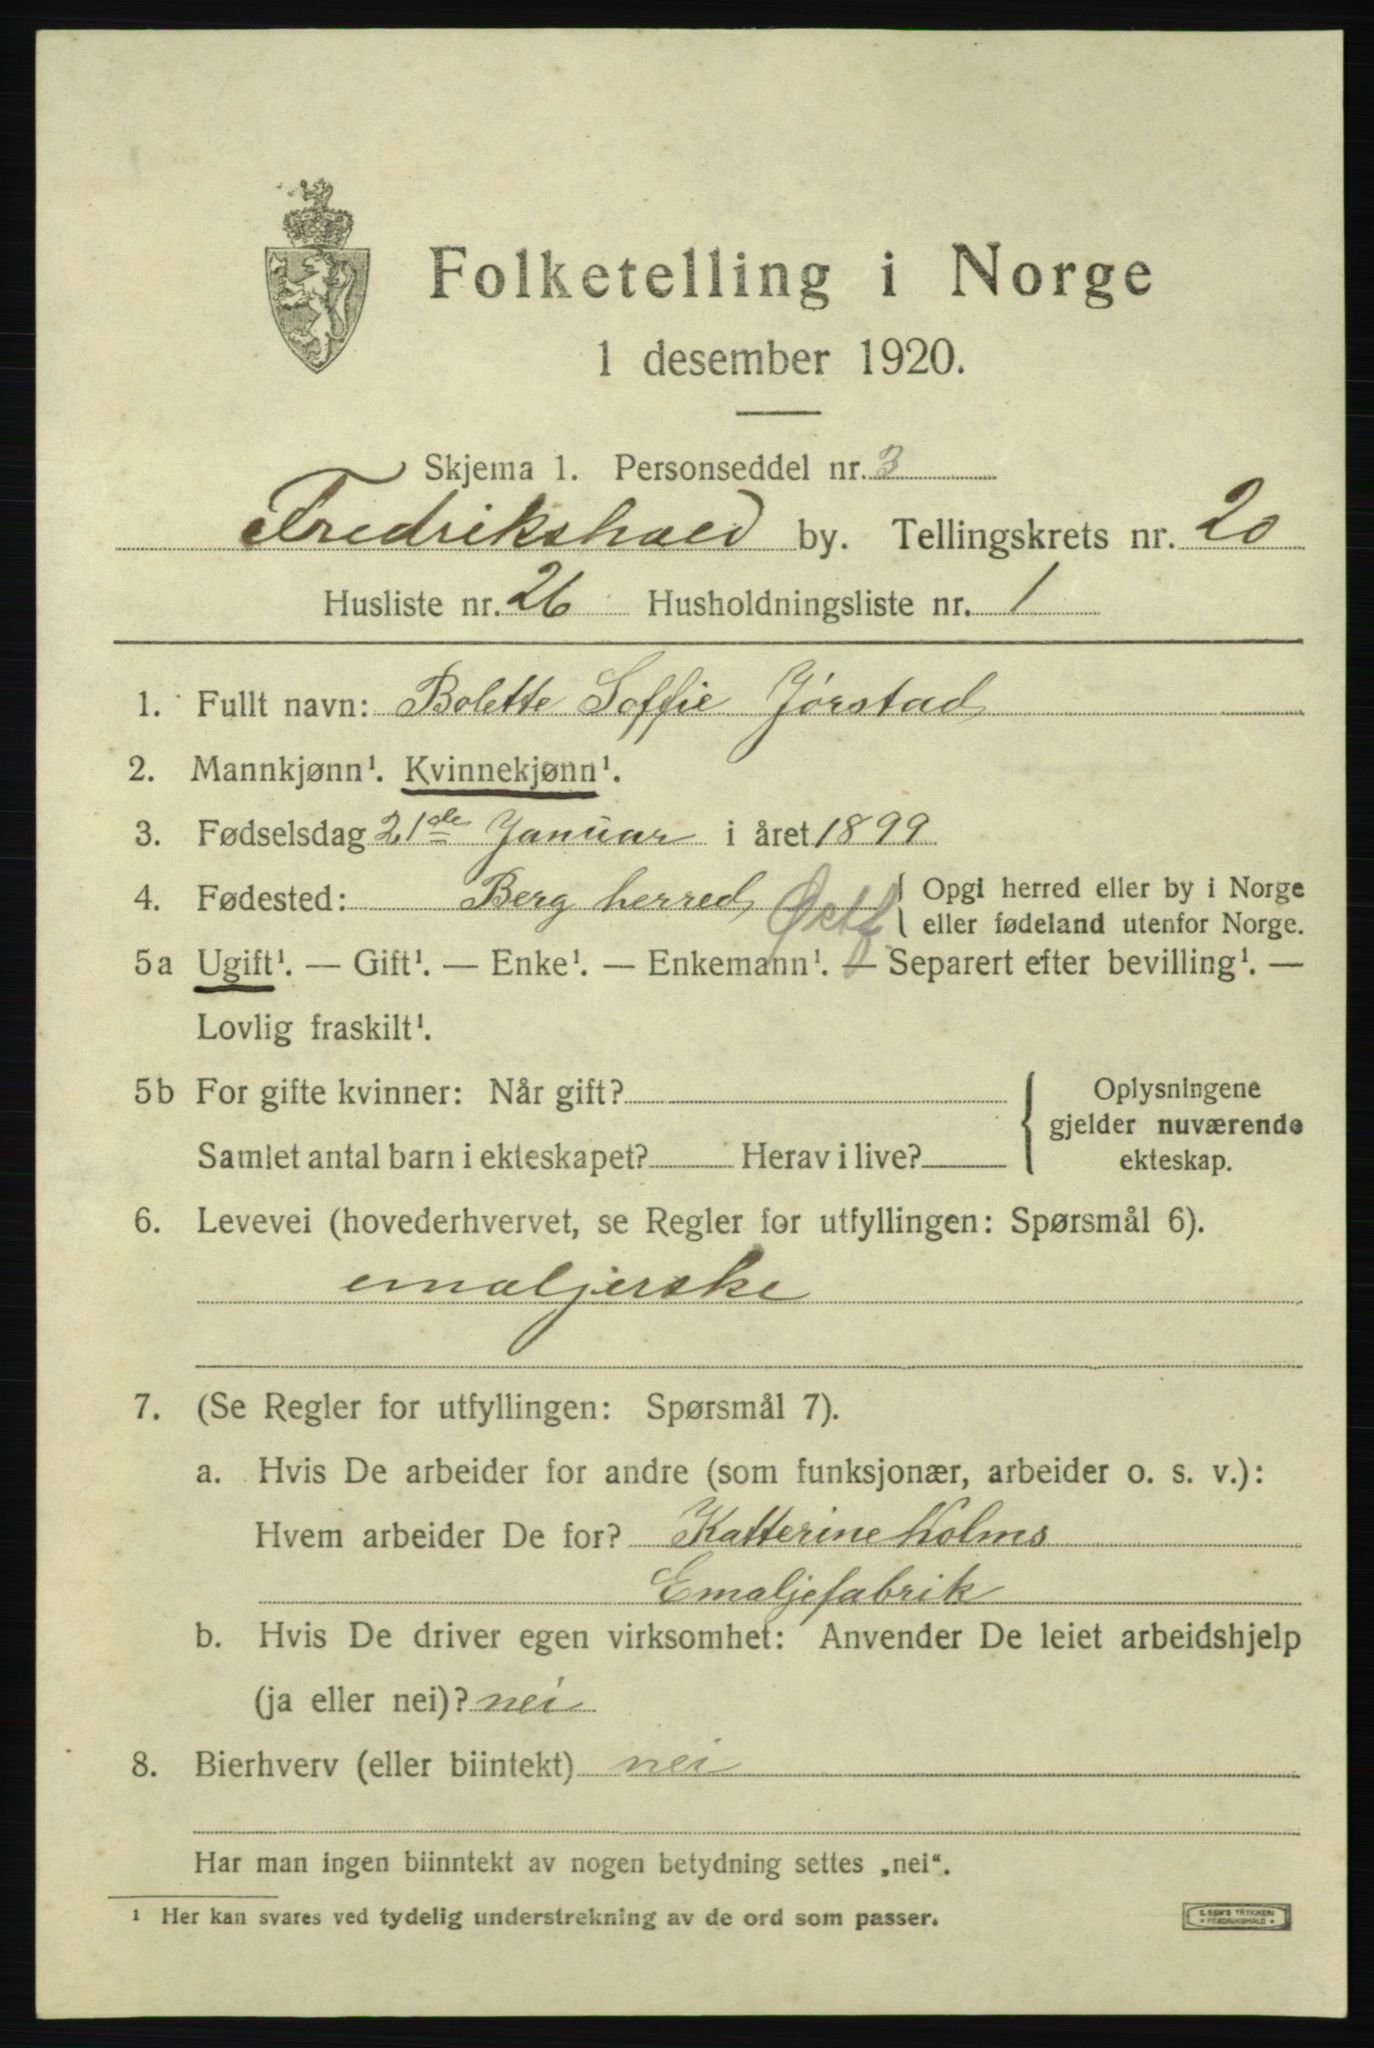 Folketelling i Norge
1 desember 1920.
Skjema 1. Personseddel nr. 3
Fredrikshald by. Tellingskrets nr. 20
Husliste nr. 26 Husholdningsliste nr. 1
1. Fullt navn: Bolette Soffie Jörstad
2. Mannkjønn¹. Kvinnekjønn¹.
3. Fødselsdag 21de Januar i året 1899
4. Fødested: Berg herred Østf. { Opgi herred eller by i Norge
eller fødeland utenfor Norge.
5a Ugift¹. — Gift¹. — Enke¹. — Enkemann¹. — Separert efter bevilling¹. —
Lovlig fraskilt¹.
5b For gifte kvinner: Når gift? { Oplysningene
gjelder nuværende
Samlet antal barn i ekteskapet? Herav i live? ekteskap.
6. Levevei (hovederhvervet, se Regler for utfyllingen: Spørsmål 6).
emaljerske
7. (Se Regler for utfyllingen: Spørsmål 7).
a. Hvis De arbeider for andre (som funksjonær, arbeider o. s. v.):
Hvem arbeider De for? Katterine Holms
Emaljefabrik
b. Hvis De driver egen virksomhet: Anvender De leiet arbeidshjelp
(ja eller nei)? nei
8. Bierhverv (eller biintekt) nei
Har man ingen biinntekt av nogen betydning settes „nei“.
¹ Her kan svares ved tydelig understrekning av de ord som passer.
E. SEM'S TRYKKERI
• FREDRIKSHALD •